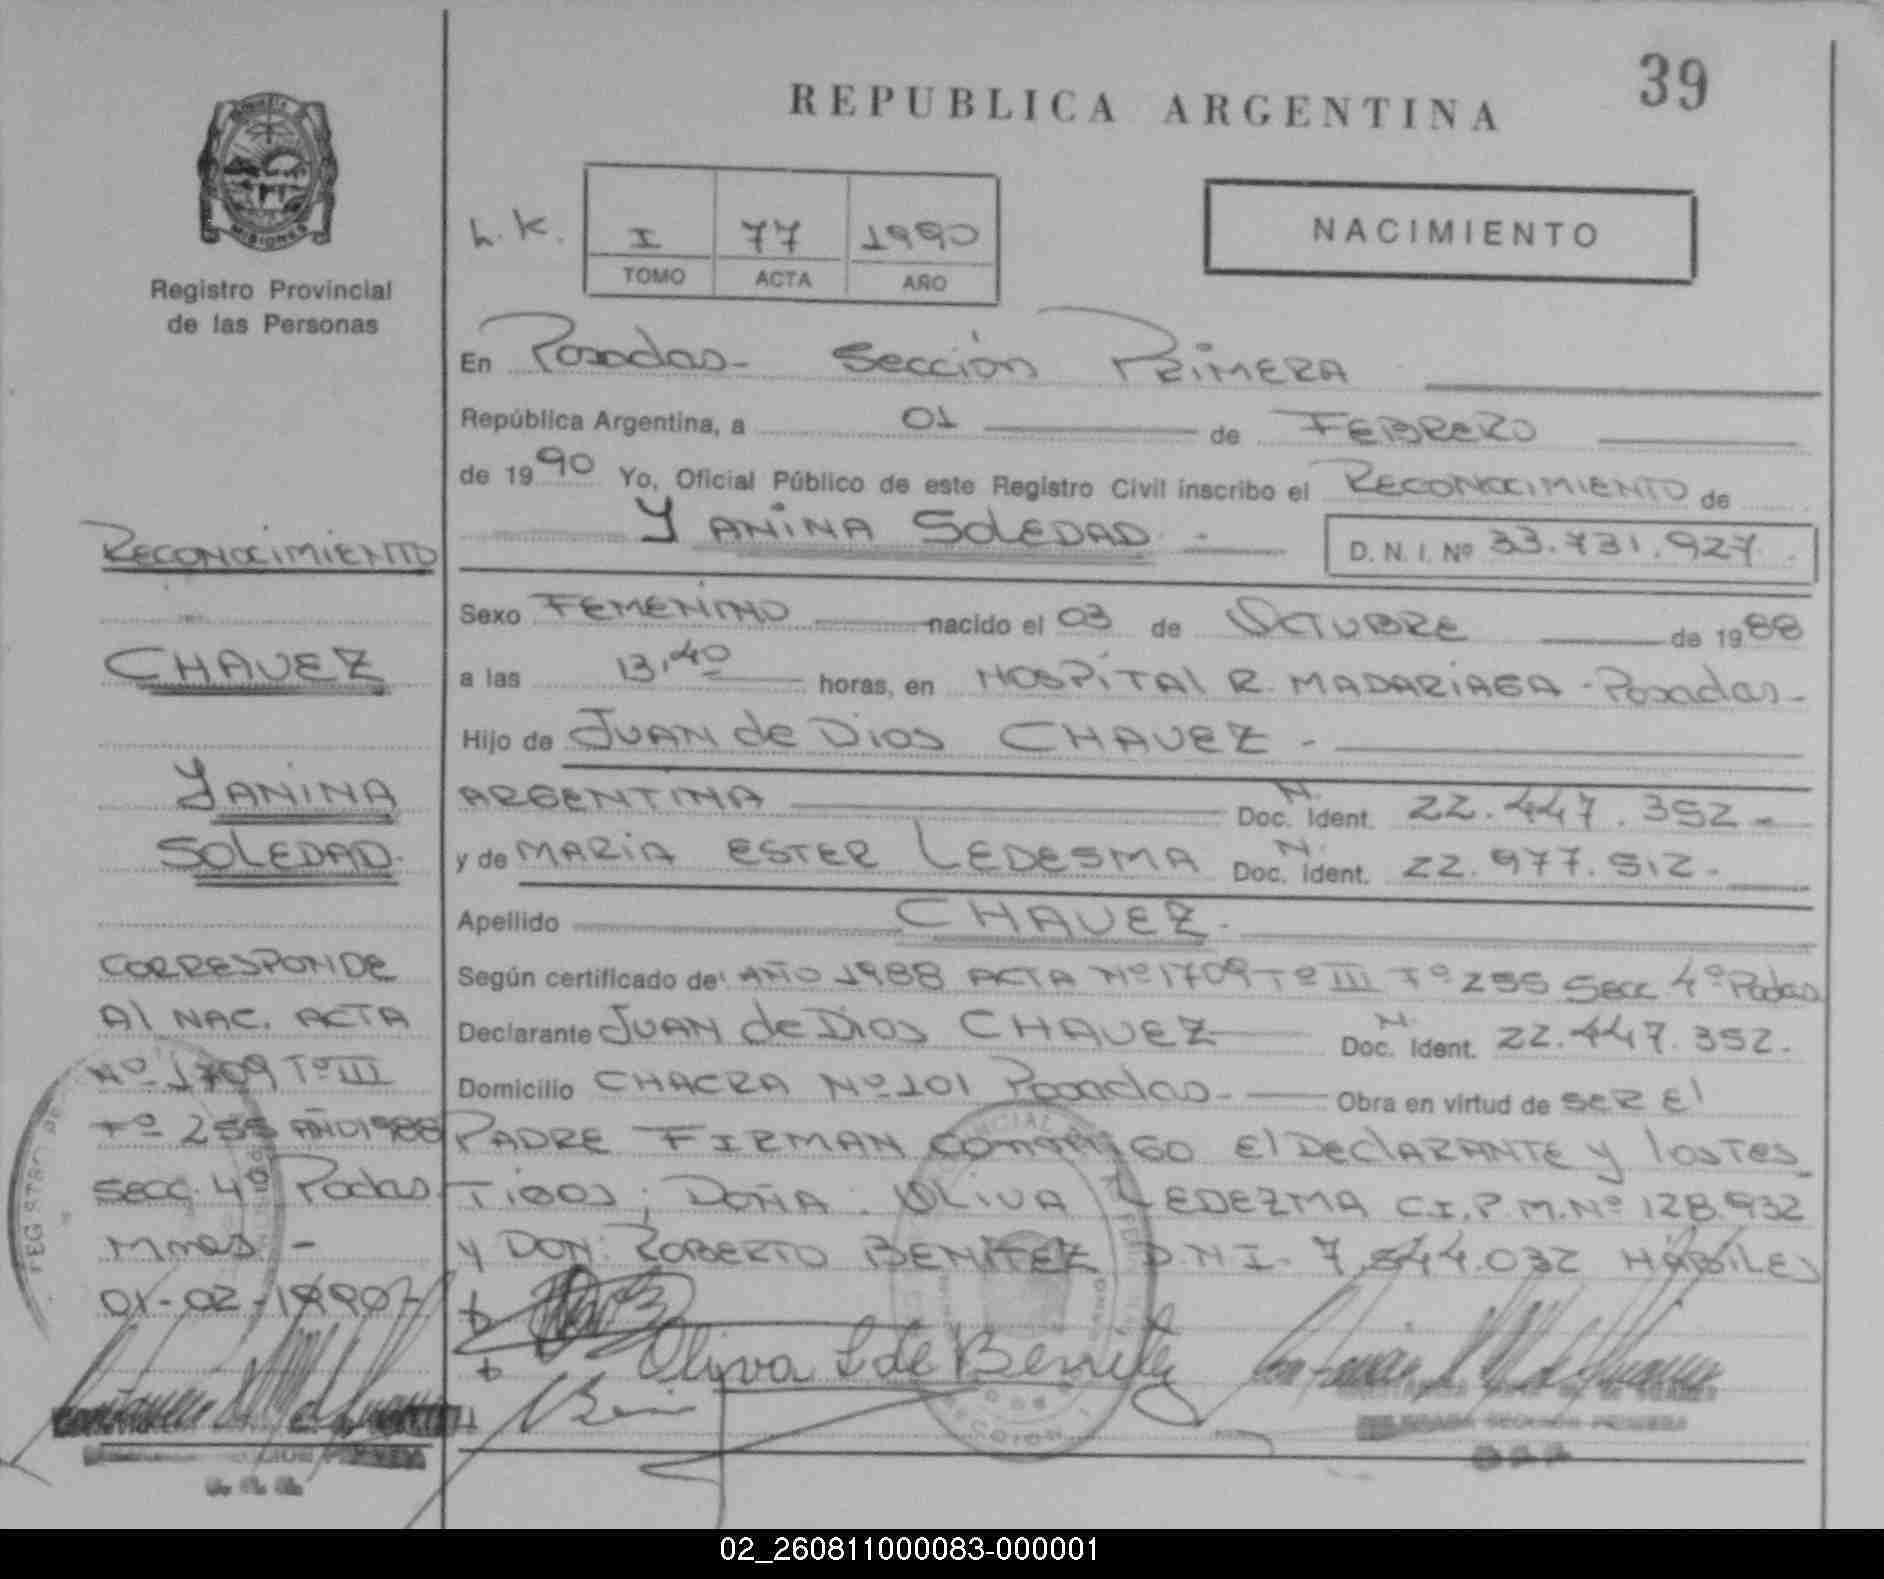 39
REPUBLICA ARGENTINA
NACIMIENTO
MISIONES
Registro Provincial
de las Personas
h. k.
I 77 1990
TOMO ACTA AÑO
En Posadas - Sección PRIMERA
República Argentina, a 01 de FEBRERO
de 1990 Yo, Oficial Público de este Registro Civil inscribo el RECONOCIMIENTO de
YANINA SOLEDAD.- D. N. I. Nº 33.731.927.
Sexo FEMENINO nacido el 03 de OCTUBRE de 1988
a las 13,40 horas, en HOSPITAL R. MADARIAGA - Posadas -
Hijo de JUAN de Dios CHAVEZ -
ARGENTINA N. Doc. Ident. 22.447.352 -
y de MARIA ESTER LEDESMA N. Doc. Ident. 22.977.512 -
Apellido CHAVEZ.
Según certificado de AÑO 1988 ACTA Nº 1709 Tº III Fº 255 Secc. 4º Podas
Declarante JUAN de Dios CHAVEZ N. Doc. Ident. 22.447.352.
Domicilio CHACRA Nº 101 Posadas - Obra en virtud de SER El
PADRE FIRMAN CONMIGO El DEClARANTE y los TES_
TIGOS; DOÑA: OLIVA LEDEZMA C.I.P.M.Nº 128.932
y DON: ROBERTO BENITEZ D.N.I. 7.544.032 HABILES
Oliva L de Benitez
RECONOCIMIENTO
CHAVEZ
YANINA
SOLEDAD.
CORRESPONDE
Al NAC. ACTA
Nº 1709 Tº III
Fº 255 AÑO 1988
Secc. 4º Podas
Mnes -
01-02-1990
SECCION PRIMERA
02_260811000083-000001